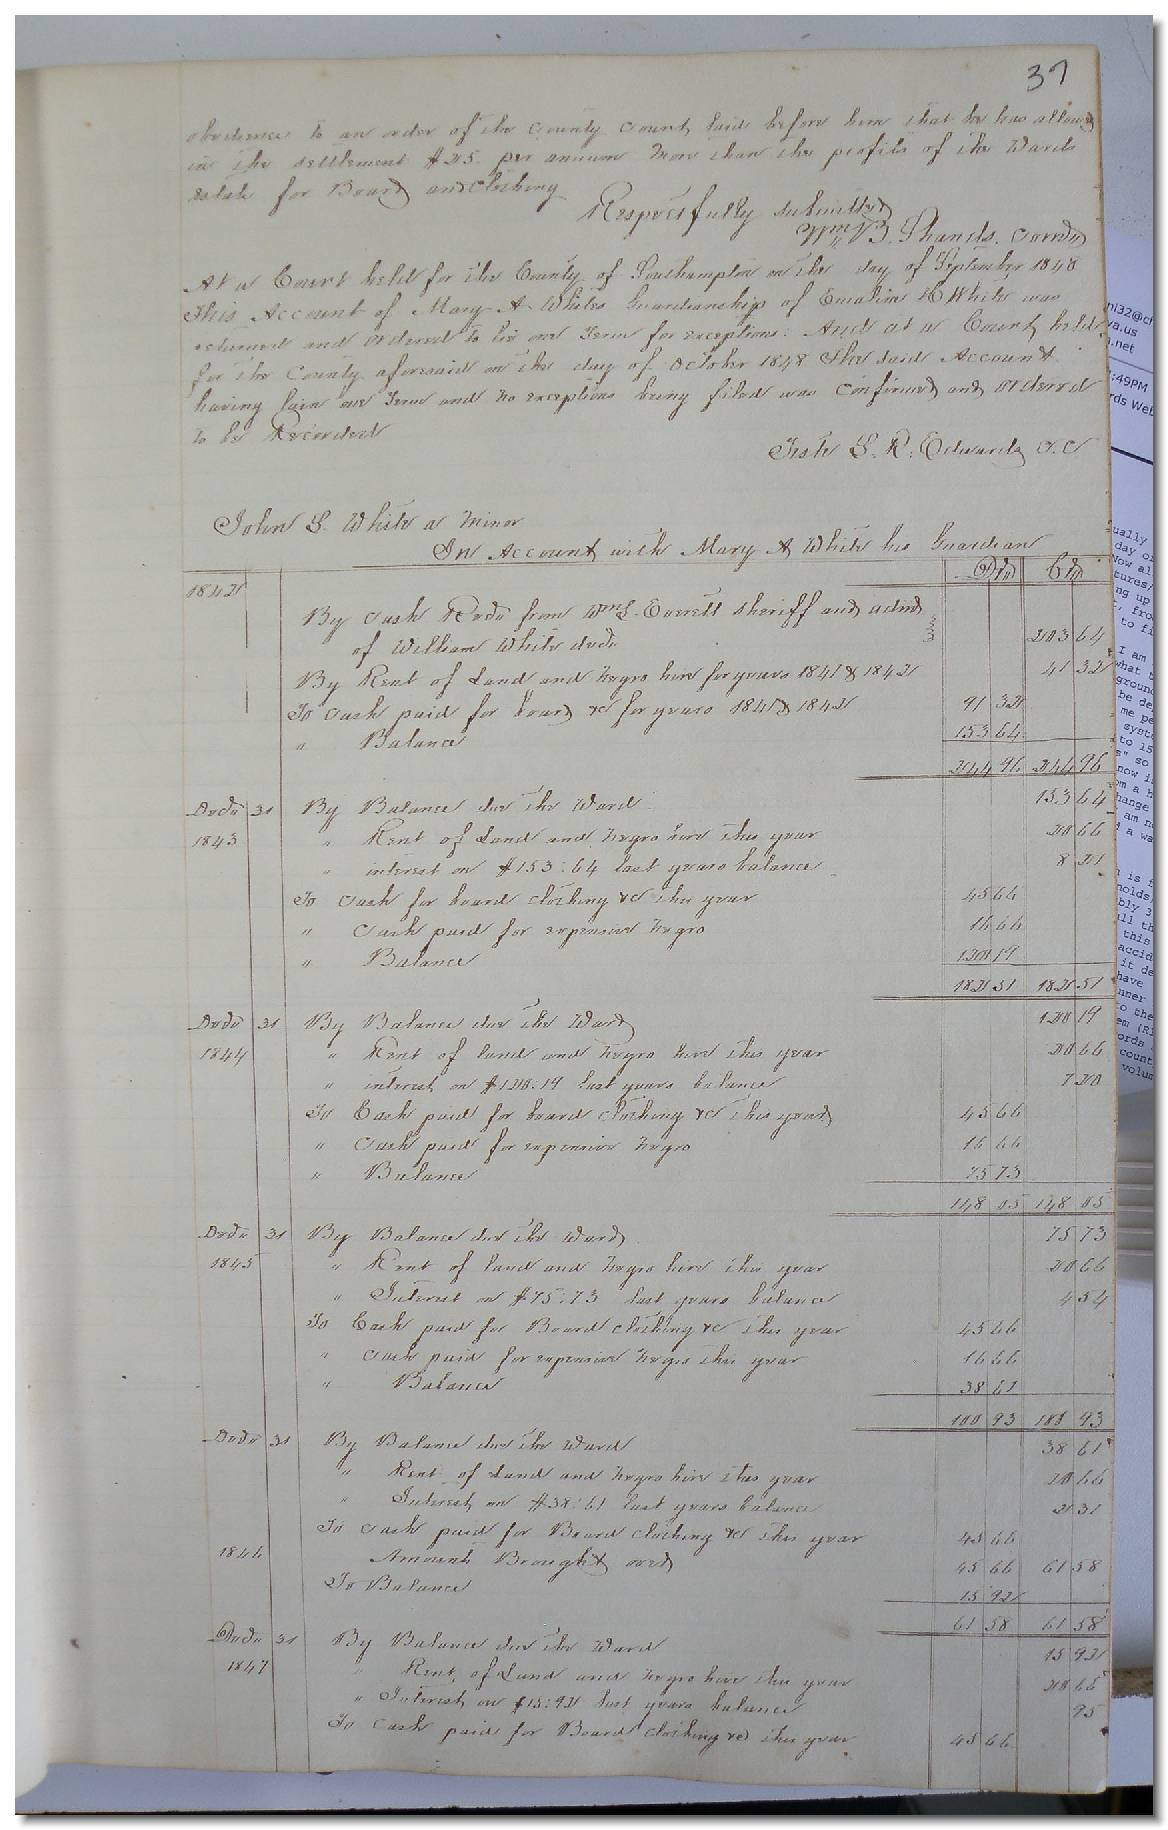 37
obedience to an order of the County Court, laid before him that he has allowed
in the settlement $25. per annum more than the profits of the Wards
estate for Board and Clothing
Respectfully submitted
Wm B. Shands. Comr
At a Court held for the County of Southampton on the day of September 1848
This Account of Mary A. Whites Guardianship of Emaline H White was
returned and ordered to lie one Term for exceptions: And at a Court held
for the County aforesaid on the day of October 1848 The said Account
having lain one Term and no exceptions being filed was Confirmed and Ordered
to be Recorded
Teste L. R. Edwards C.C
John S. White a Minor
In Account with Mary A White his Guardian
Dr Cr
1842
By Cash Recd from Wm S. Everett Sheriff and admr
of William White decd. 203 64
By Rent of Land and Negro hire for years 1841 & 1842 41 32
To Cash paid for board &c for years 1841 & 1842 91 32
" Balance 153 64
244 96 244 96
31 By Balance due the Ward 153 64
1843 " Rent of Land and Negro hire this year 20 66
" interest on $153.64 last years balance 8 21
To Cash for board clothing &c this year 45 66
" Cash paid for expensive Negro 16 66
" Balance 120 19
182 51 182 51
31 By Balance due the Ward 120 19
1844 " Rent of land and Negro hire this year 20 66
" interest on $120.19 last years balance 7 20
To Cash paid for board clothing &c this year 45 66
" Cash paid for expensive Negro 16 66
" Balance 75 73
148 05 148 05
31 By Balance due the Ward 75 73
1845 " Rent of land and Negro hire this year 20 66
" Interest on $75.73 last years balance 4 54
To Cash paid for Board clothing &c this year 45 66
" Cash paid for expensive Negro this year 16 66
" Balance 38 61
100 93 100 93
31 By Balance due the Ward 38 61
" Rent of Land and Negro hire this year 20 66
" Interest on $38.61 last years balance 2 31
To Cash paid for Board clothing &c this year 45 66
1846 Amounts Brought over 45 66 61 58
To Balance 15 92
61 58 61 58
31 By Balance due the Ward 15 92
1847 " Rent of Land and Negro hire this year 20 66
" Interest on $15.92 last years balance 95
To Cash paid for Board clothing &c this year 45 66